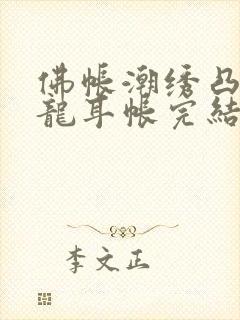 佛帳潮绣凸
龍耳帳完結
李文正